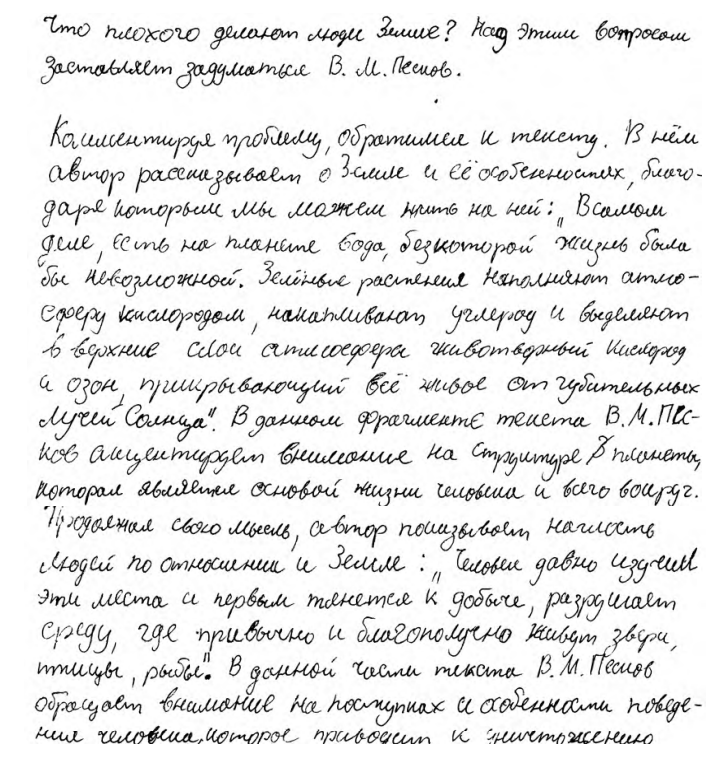 Что плохого делают люди Земле? Над этим вопросом
заставляет задуматься В. М. Песков.
Комментируя проблему, обратимся к тексту. В нём
автор рассказывает о Земле и её особенностях, благо-
даря которым мы можем жить на ней: „В самом
деле, есть на планете вода, без которой жизнь была
бы невозможной. Зелёные растения наполняют атмо-
сферу кислородом, накапливают углерод и выделяют
в верхние слои атмосферы животворный кислород
и озон, прикрывающий всё живое от губительных
лучей Солнца". В данном фрагменте текста В. М. Пес-
ков акцентирует внимание на структуре планеты,
которая является основой жизни человека и всего вокруг.
Продолжая свою мысль, автор показывает наглость
людей по отношении к Земле: „Человек давно изучил
эти места и первым тянется к добыче, разрушает
среду, где привычно и благополучно живут звери,
птицы, рыбы". В данной части текста В. М. Песков
обращает внимание на поступках и особенности поведе-
ния человека, которое приводит к уничтожению